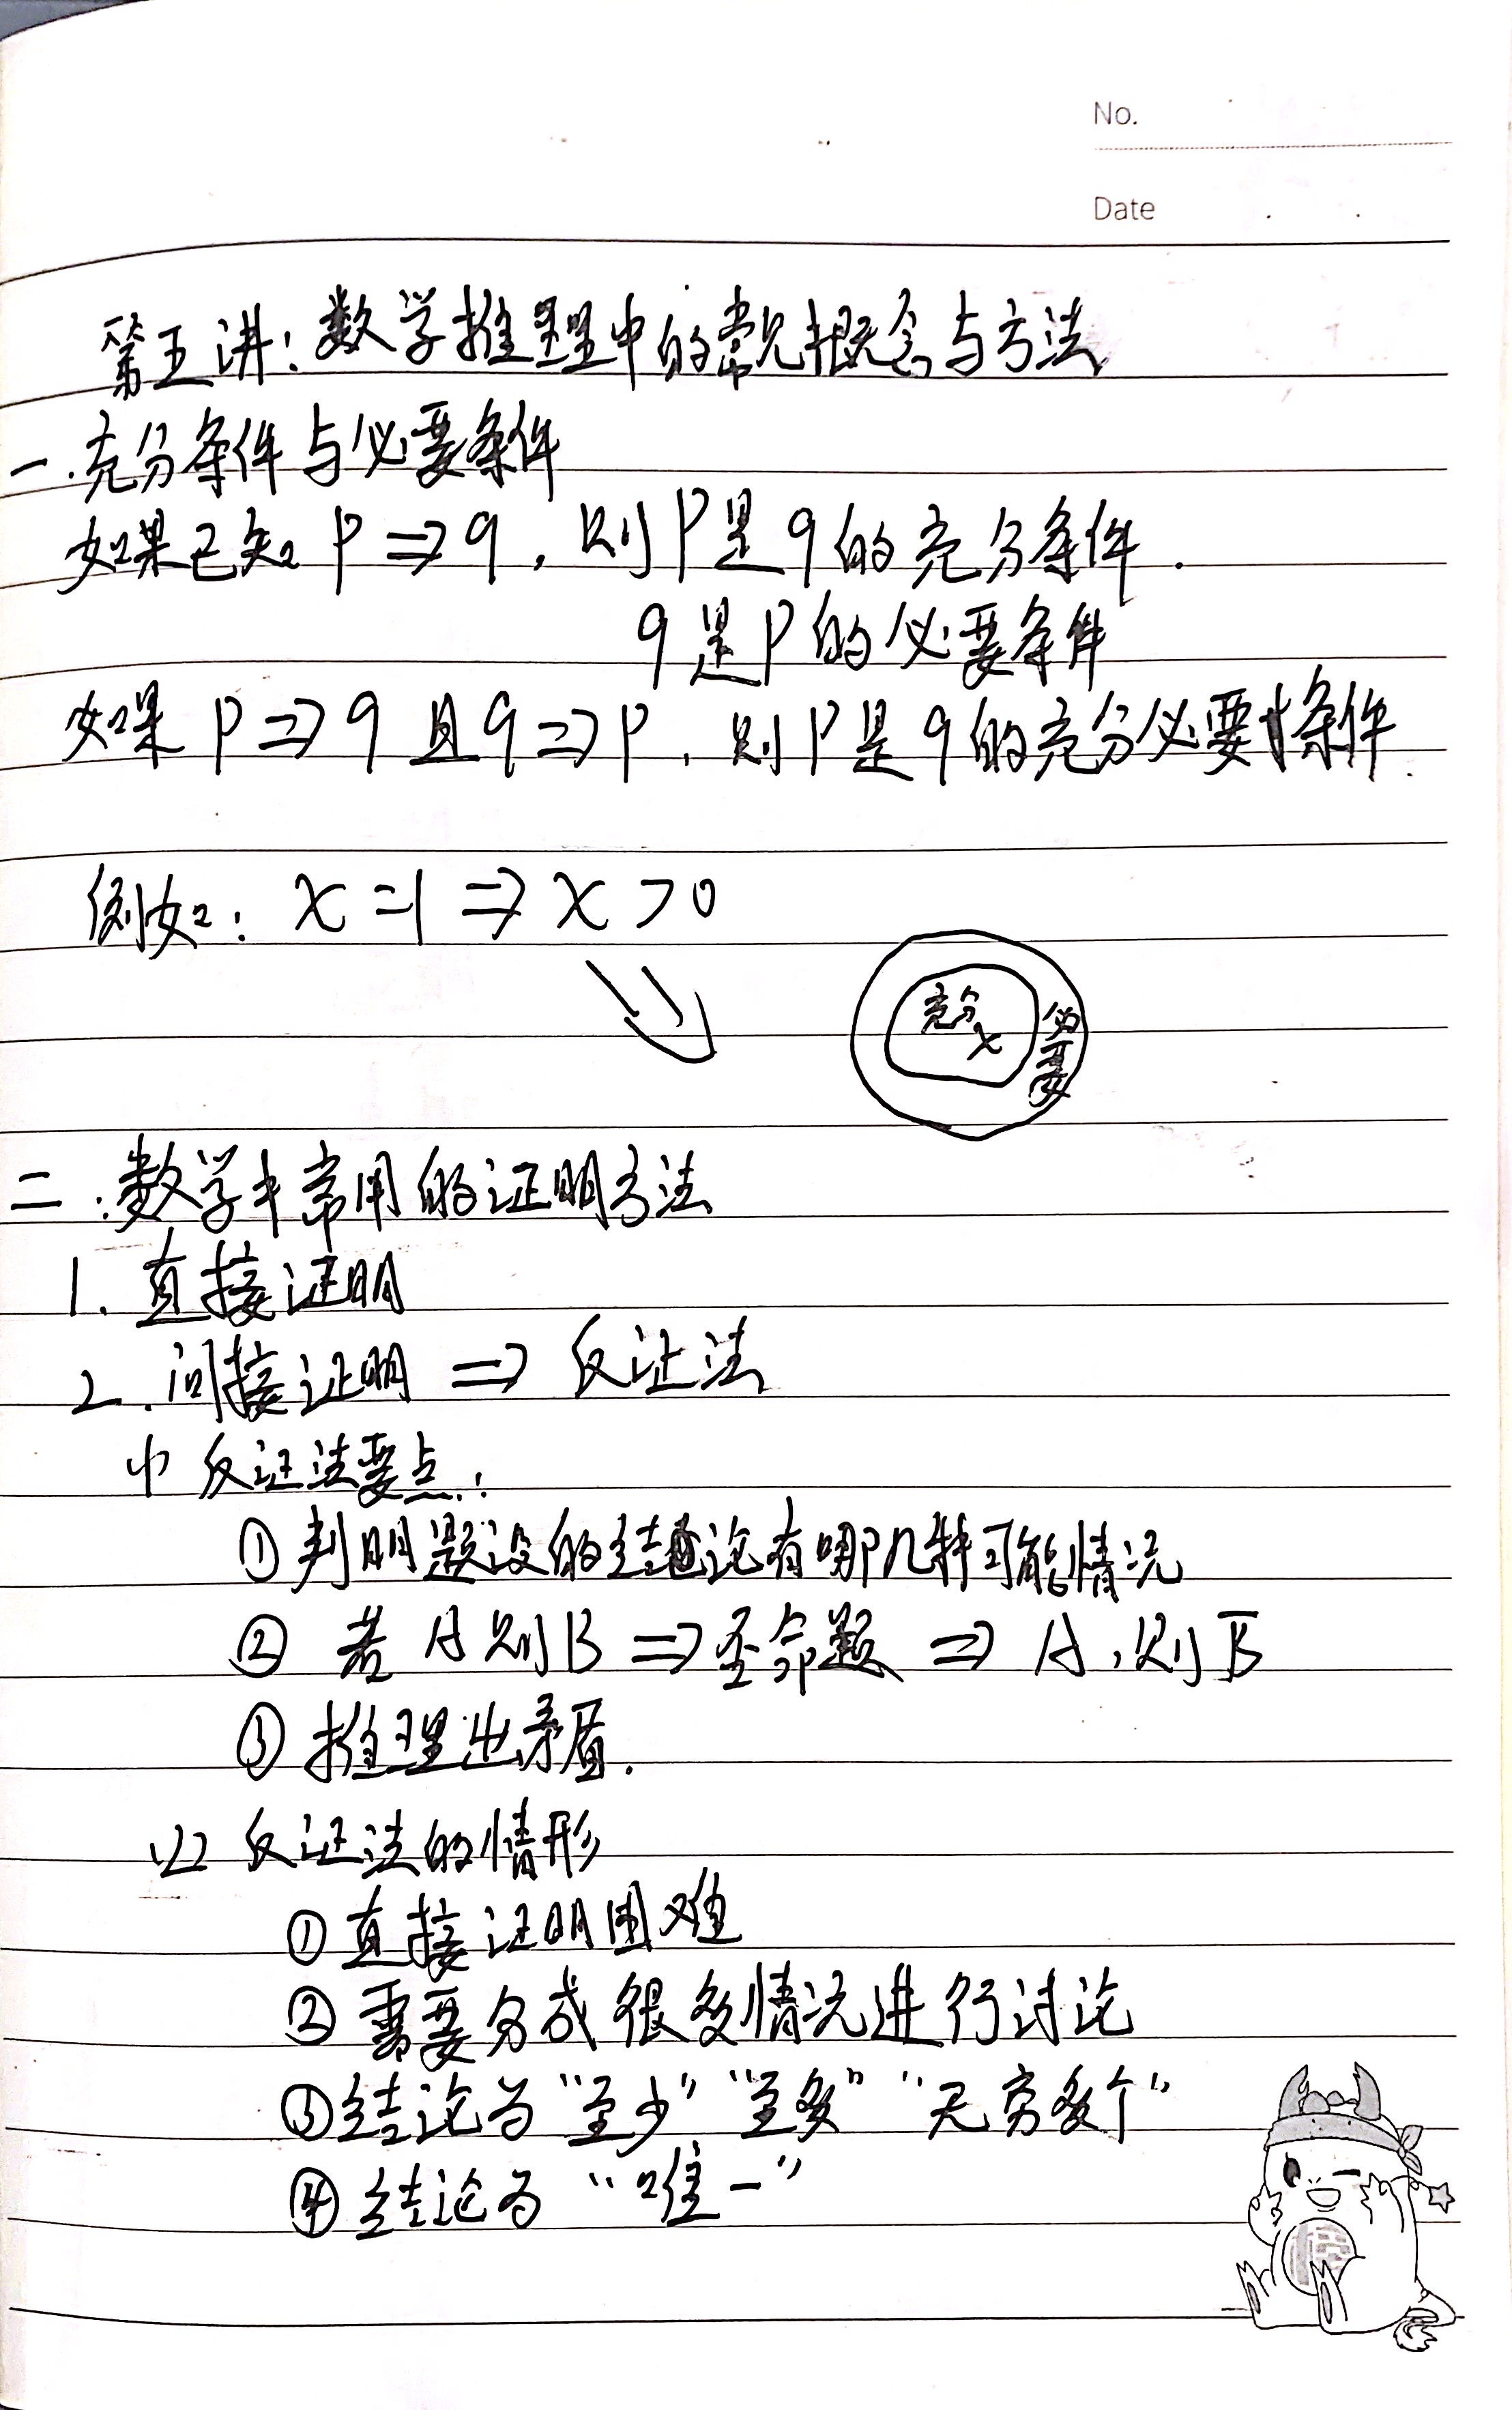 No.
Date
第五讲：数学推理中的常见概念与方法
一.充分条件与必要条件
如果已知 P⇒q，则P是q的充分条件.
q是P的必要条件
如果 P⇒q 且 q⇒P，则P是q的充分必要条件.
例如：x=1⇒x>0
充分
x
必要
二.数学中常用的证明方法
1.直接证明
2.间接证明 ⇒ 反证法
(1) 反证法要点：
① 判明题设的结论有哪几种可能情况
② 若A则B ⇒ 否命题 ⇒ A，则B̅
③ 推理出矛盾.
(2) 反证法的情形
① 直接证明困难
② 需要分成很多情况进行讨论
③ 结论为“至少”“至多”“无穷多个”
④ 结论为“唯一”